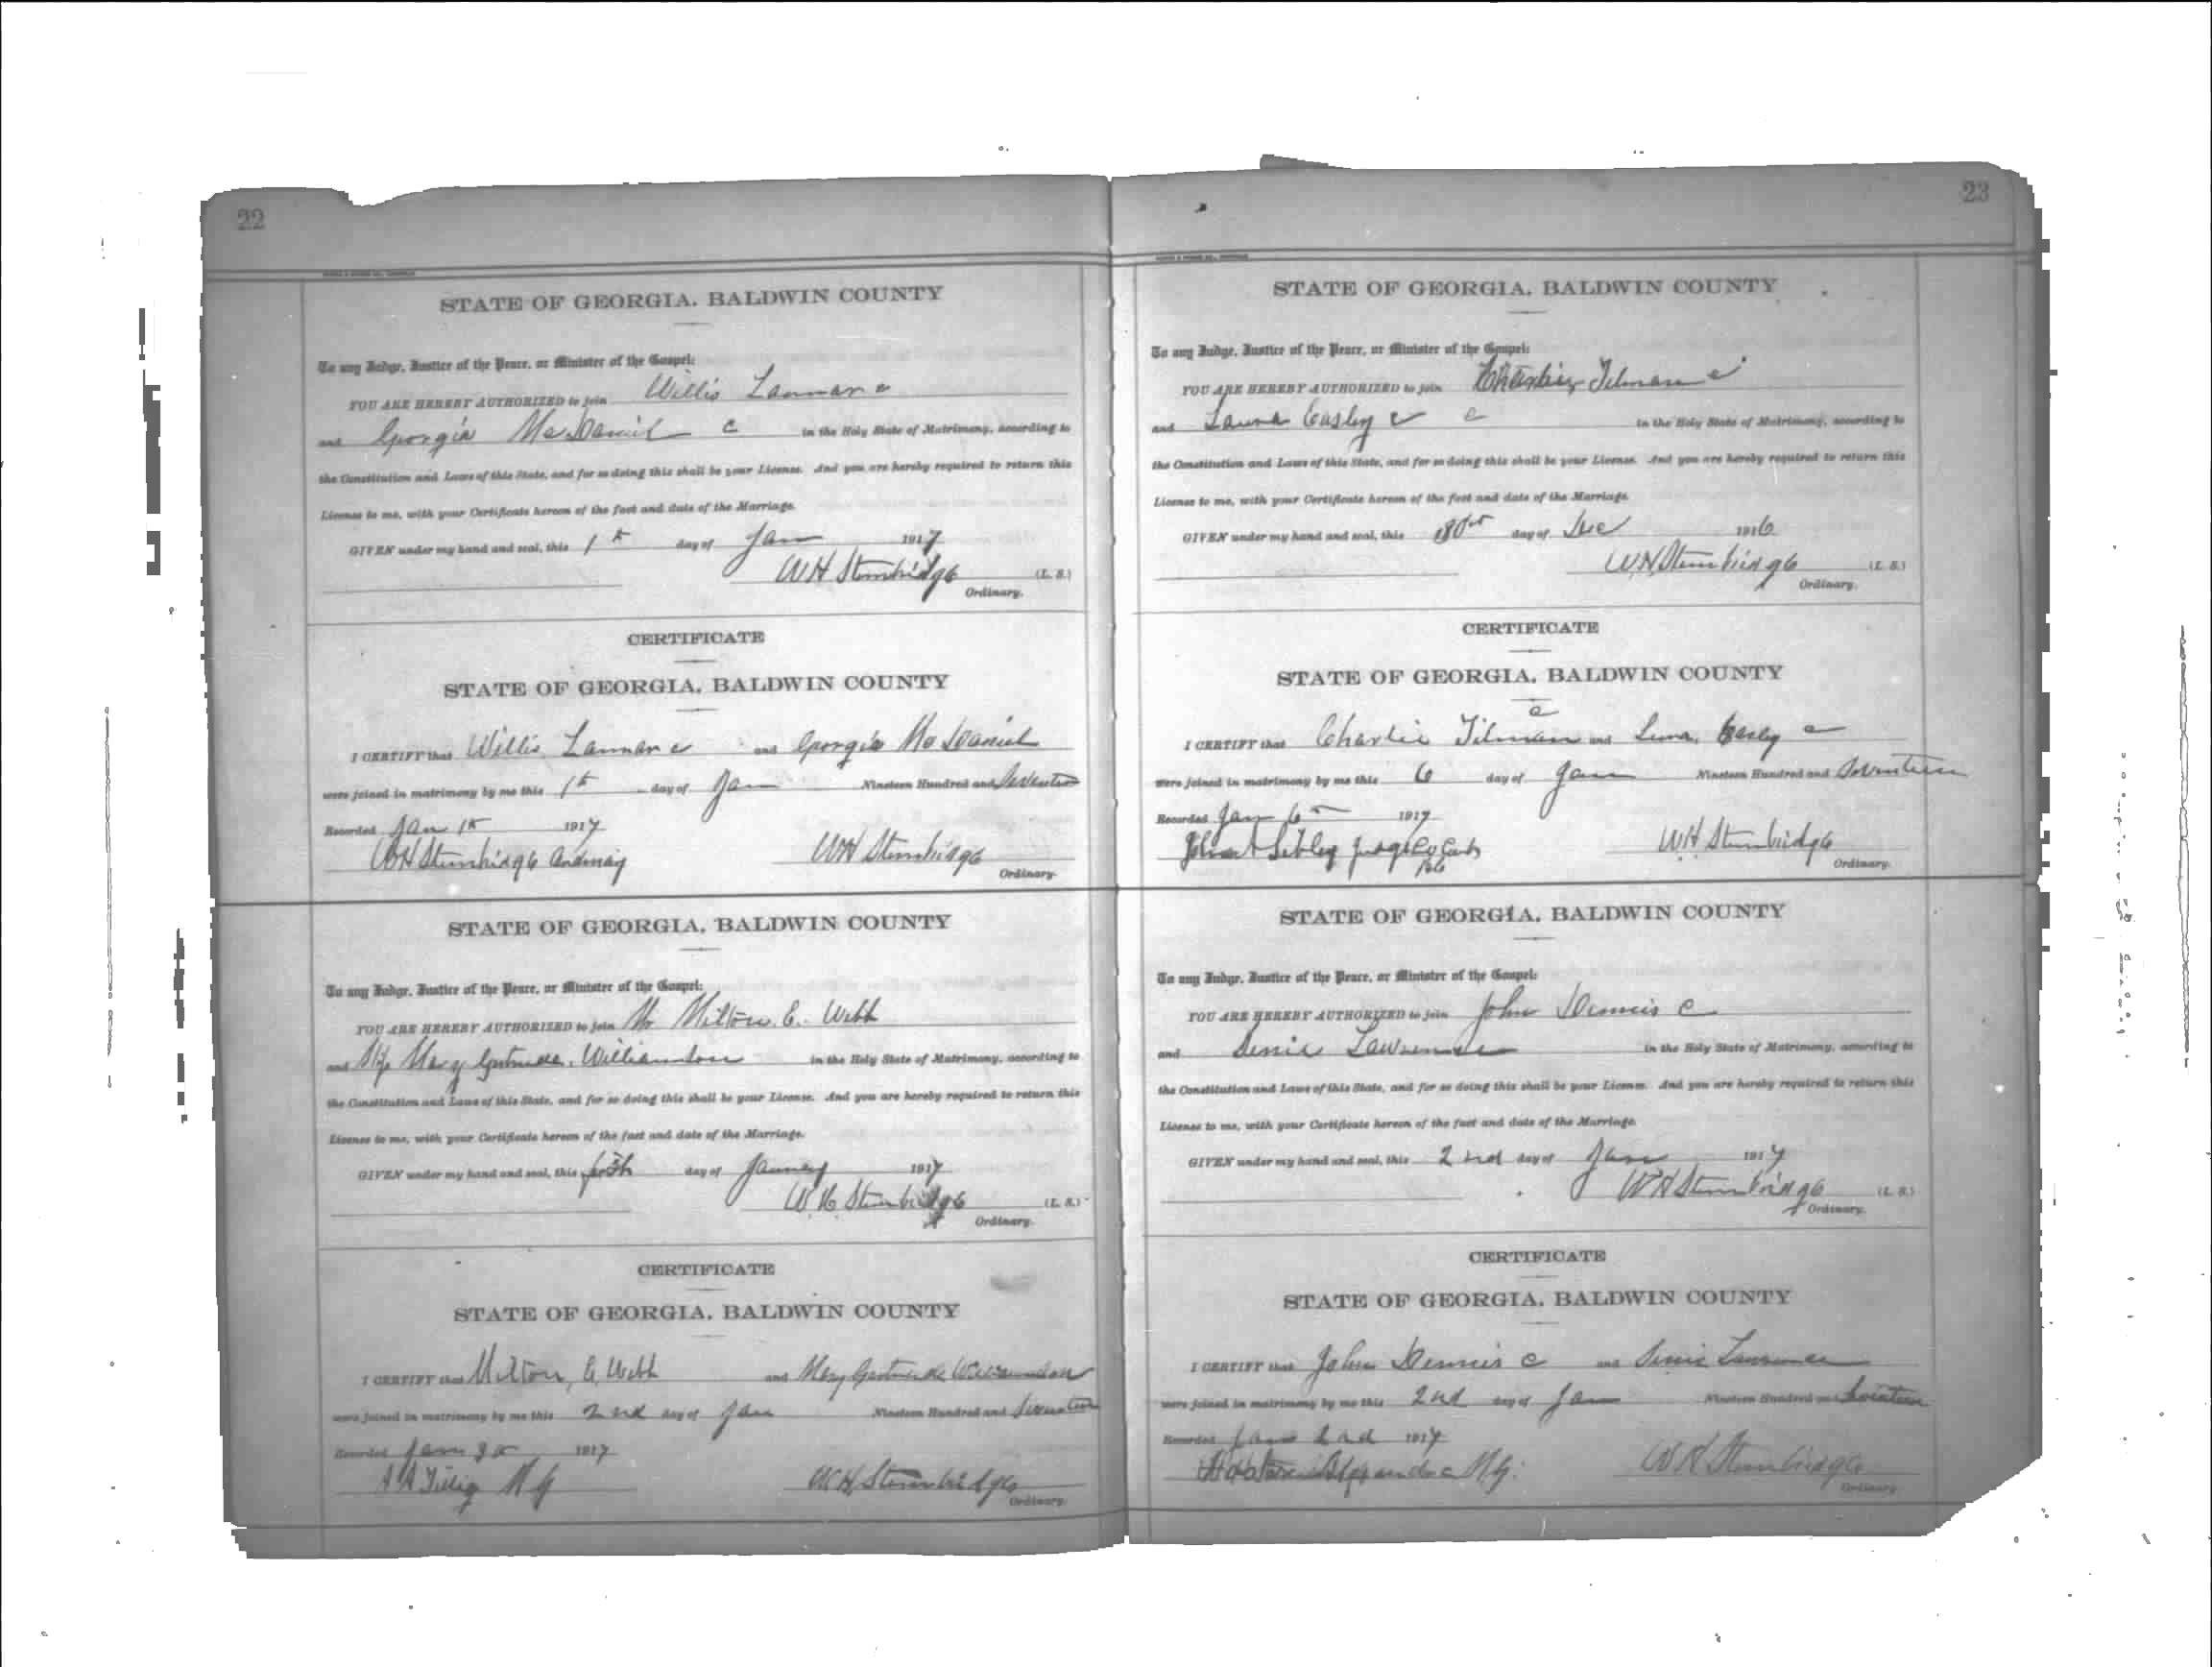 22
STATE OF GEORGIA. BALDWIN COUNTY
To any Judge, Justice of the Peace, or Minister of the Gospel:
YOU ARE HEREBY AUTHORIZED to join Willis Lamar c
and Georgia McDaniel c in the Holy State of Matrimony, according to
the Constitution and Laws of this State, and for so doing this shall be your License. And you are hereby required to return this
License to me, with your Certificate hereon of the fact and date of the Marriage.
GIVEN under my hand and seal, this 1st day of Jan 1917
WH Stembridge (L. S.)
Ordinary.
CERTIFICATE
STATE OF GEORGIA. BALDWIN COUNTY
I CERTIFY that Willis Lamar c and Georgia McDaniel
were joined in matrimony by me this 1st day of Jan Nineteen Hundred and Seventeen
Recorded Jan 1st 1917
WH Stembridge Ordinary WH Stembridge
Ordinary
STATE OF GEORGIA. BALDWIN COUNTY
To any Judge, Justice of the Peace, or Minister of the Gospel:
YOU ARE HEREBY AUTHORIZED to join Mr Milton C. Webb
and Mary Gertrude Williamson in the Holy State of Matrimony, according to
the Constitution and Laws of this State, and for so doing this shall be your License. And you are hereby required to return this
License to me, with your Certificate hereon of the fact and date of the Marriage.
GIVEN under my hand and seal, this day of January 1917
W H Stembridge (L. S.)
Ordinary.
CERTIFICATE
STATE OF GEORGIA. BALDWIN COUNTY
I CERTIFY that Milton C. Webb and Mary Gertrude Williamson
were joined in matrimony by me this 2nd day of Jan Nineteen Hundred and Seventeen
Recorded Jan 1917
M G WH Stembridge
Ordinary.
23
STATE OF GEORGIA. BALDWIN COUNTY
To any Judge, Justice of the Peace, or Minister of the Gospel:
YOU ARE HEREBY AUTHORIZED to join Charlie Tilman c
and Laura Easley c c in the Holy State of Matrimony, according to
the Constitution and Laws of this State, and for so doing this shall be your License. And you are hereby required to return this
License to me, with your Certificate hereon of the fact and date of the Marriage.
GIVEN under my hand and seal, this day of Dec 1916
W.H. Stembridge (L. S.)
Ordinary.
CERTIFICATE
STATE OF GEORGIA. BALDWIN COUNTY
c
I CERTIFY that Charlie Tilman and Easley c
were joined in matrimony by me this 6 day of Jan Nineteen Hundred and Seventeen
Recorded Jan 6 1917
Sibley Judge Co Court WH Stembridge
Ordinary.
STATE OF GEORGIA. BALDWIN COUNTY
To any Judge, Justice of the Peace, or Minister of the Gospel:
YOU ARE HEREBY AUTHORIZED to join John Dennis c
and Lawrence in the Holy State of Matrimony, according to
the Constitution and Laws of this State, and for so doing this shall be your License. And you are hereby required to return this
License to me, with your Certificate hereon of the fact and date of the Marriage.
GIVEN under my hand and seal, this 2nd day of Jan 1917
WH Stembridge (L. S.)
Ordinary.
CERTIFICATE
STATE OF GEORGIA. BALDWIN COUNTY
I CERTIFY that John Dennis c and Lawrence
were joined in matrimony by me this 2nd day of Jan Nineteen Hundred and Seventeen
Recorded Jan 2nd 1917
Alexander M.G. WH Stembridge
Ordinary